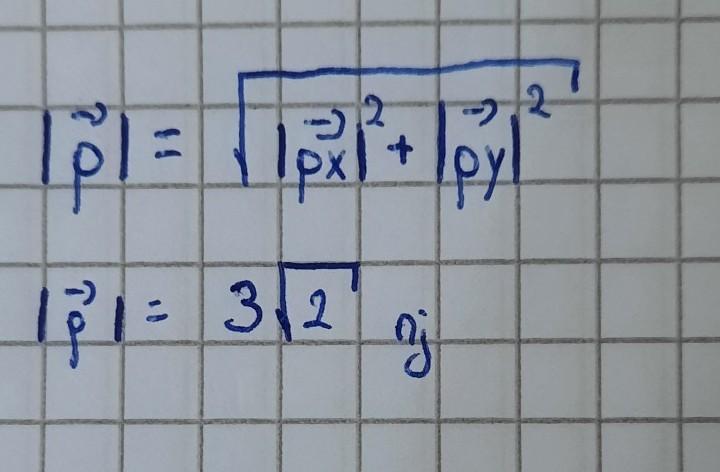 |p⃗| = √(|p⃗x|² + |p⃗y|²)
|p⃗| = 3√2 nj